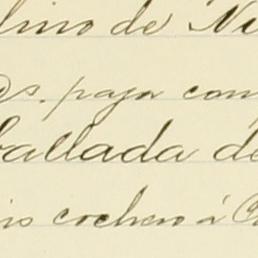 lino de Ni
Ds. paja con
ballada de
is cochero á C